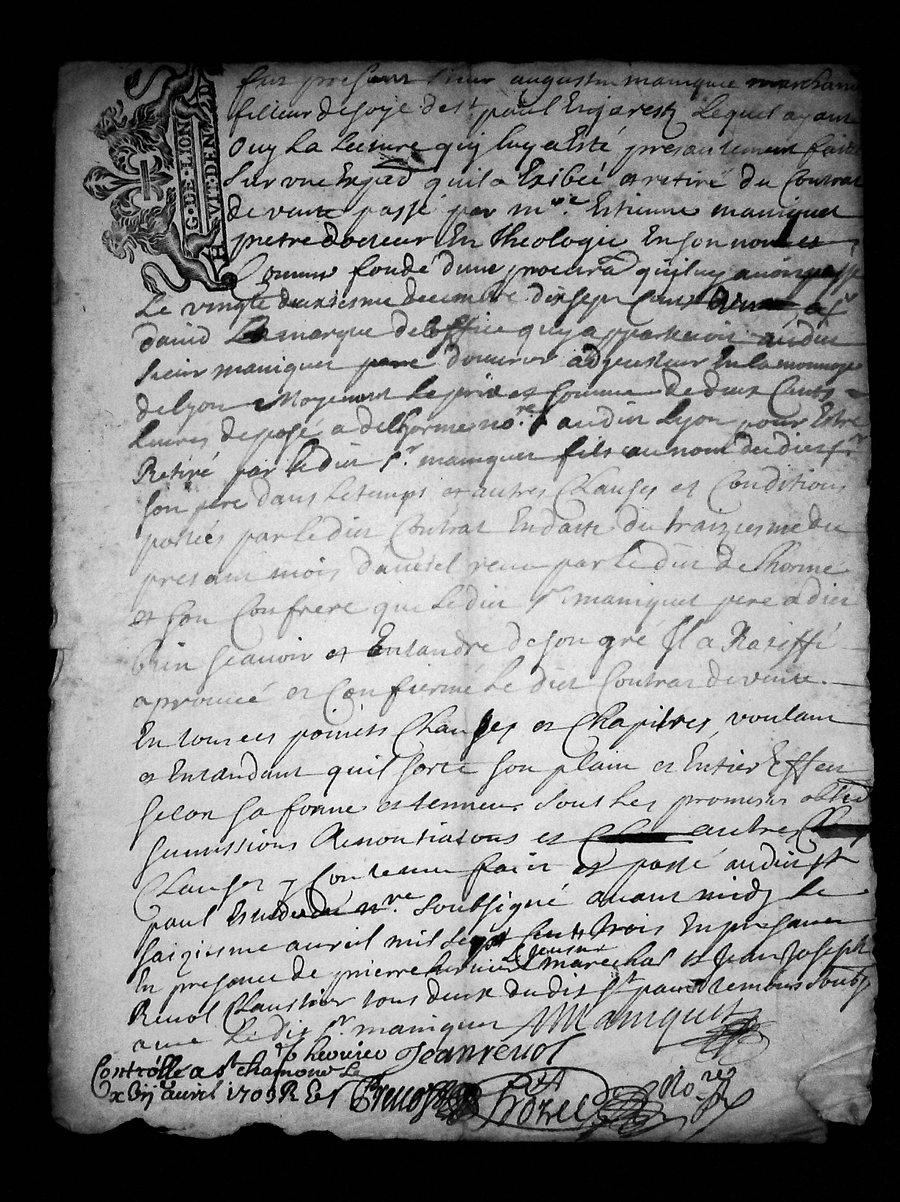 G. DE. LION
HVIT. DEN. D
fut present sieur augustin maniquet marchand
filleur de soye de st paul En Jarest Lequel ayant
Ouy La Lecture quy luy a Esté presantement faite
Sur une Expéd quil a Exibée et retiré du Contrat
de vente passé par mre Estienne maniquet
pretre docteur En Theologie En son nom et
Comme fondé dune procura quil luy avoit passé
Le vingt deuxiesme decembre dix sept Cent
david Lamarque de Loffice quy appartenoit audit
sieur maniquet pere douvrier adjeusteur En la monnoye
de lyon Moyenent Le prix et somme de deux Cents
Livres deposé a delhorme nore audit Lyon pour Estre
Retiré par Ledit sr maniquet fils au nom dudit sr
son pere dans Le temps et autres Clauses et Conditions
portées par Ledit Contrat En datte du traiziesme du
presant mois davril receu par Ledit delhorme
et son Confrere que Ledit sr maniquet pere a dit
bien scavoir et Entandre de son gré Il a Ratiffié
aprouvé et Confiermé Le dit Contrat de vente
En tous ces points Clauses et Chapitres, voulant
et Entandant quil sorte son plain et Entier Effect
selon sa forme et tenneur sous Les promesses oblig
sumissions Renontiations et autres
Clauses y Contenue fait et passé audit st
paul Estude du nre soubsigné avant midy Le
saiziesme avril mil sept Cent trois En presance
En presance de pierre Le Jeune marechal et Jean Joseph
Revol Claustrier tous deux dudit st paul temoins soubs
avec Ledit sr maniquet Maniquet
Jeanrevol
Controlle a st chamond Le
xvij avril 1703 R Es Nore